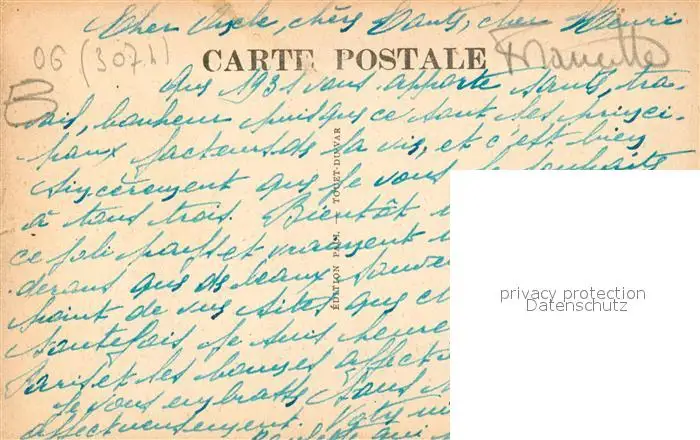 Cher Oncle, chère Tante, cher Henri
06 (3071)
CARTE POSTALE
Que 1931 vous apporte santé, tra-
vail, bonheur puisque ce sont les princi-
paux facteurs de la vie, et c'est bien
sincèrement que je vous le souhaite
à tous trois. Bientôt
ce joli pays et vraiment
derons que de beaux
point de vue sites que
toutefois je suis
Paris et les bonnes
je vous embrasse tous
affectueusement. Votre
qui
ÉDITION PAUL TOUET-DU-VAR
privacy protection
Datenschutz